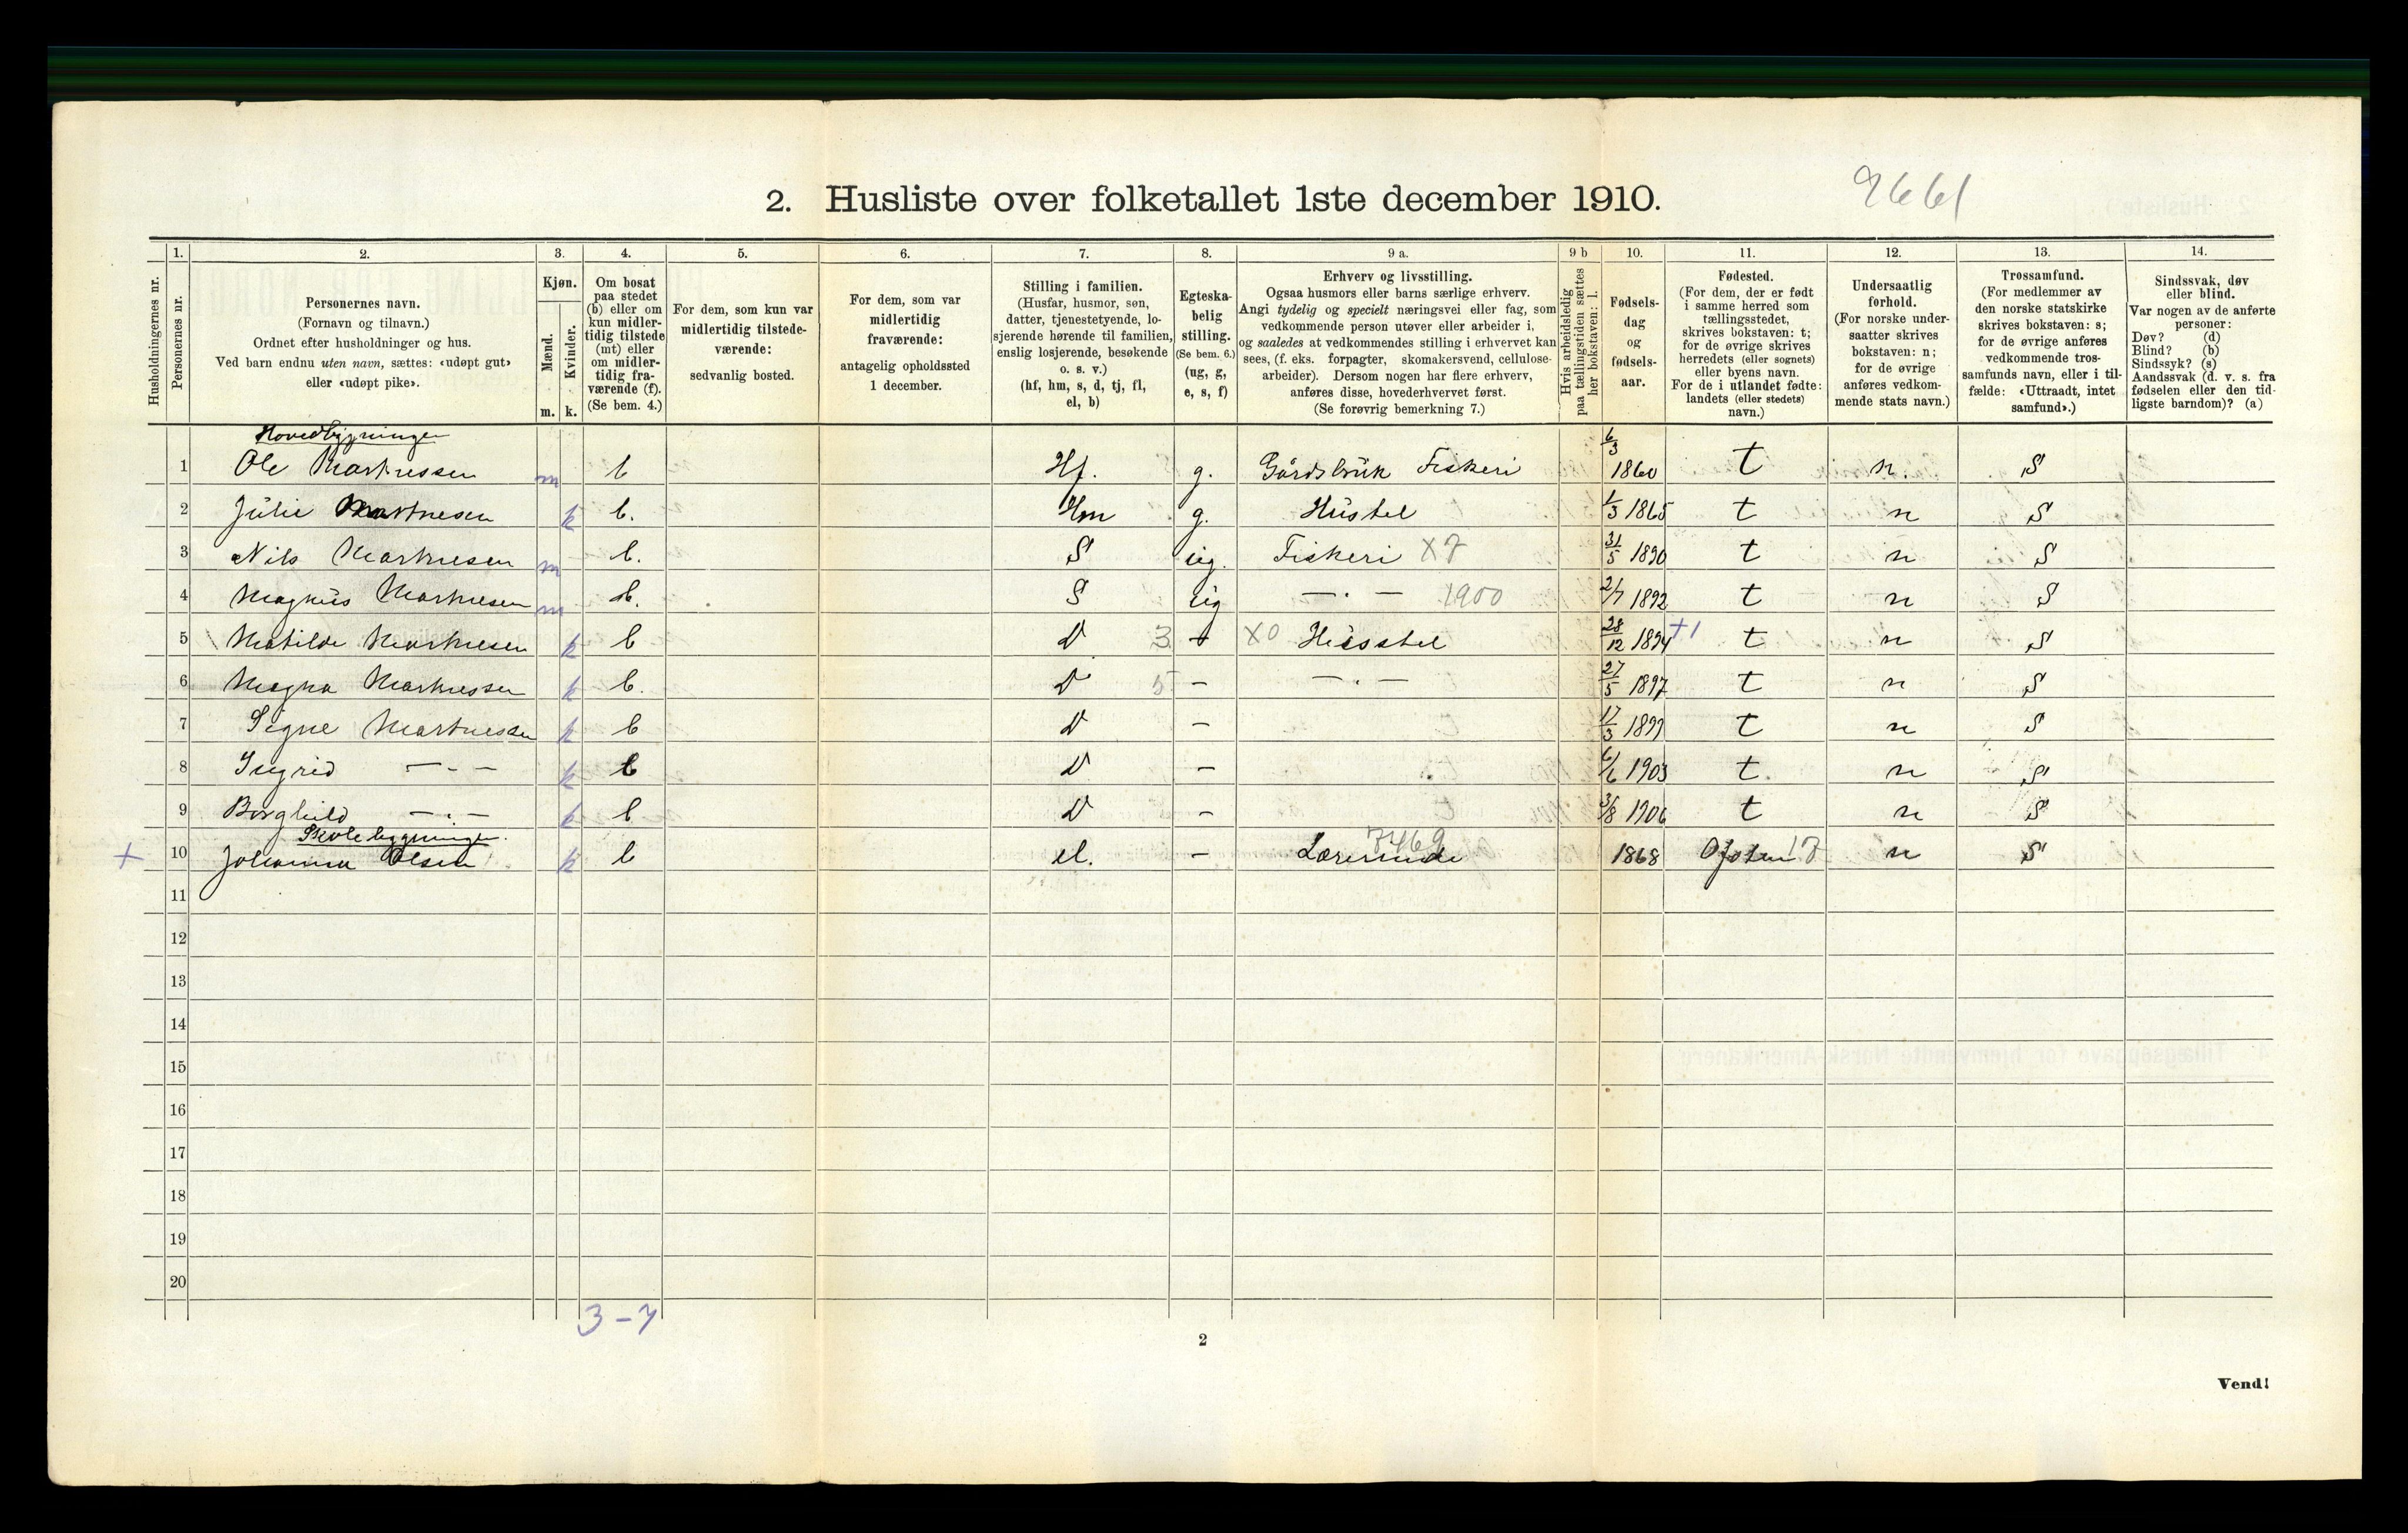 2. Husliste over folketallet 1ste december 1910.
9661
1. 2. 3. 4. 5. 6. 7. 8. 9 a. 9 b 10. 11. 12. 13. 14.
Husholdningernes nr.
Personernes nr.
Personernes navn.
(Fornavn og tilnavn.)
Ordnet efter husholdninger og hus.
Ved barn endnu uten navn, sættes: «udøpt gut»
eller «udøpt pike».
Kjøn.
Mænd.
Kvinder.
m. k.
Om bosat
paa stedet
(b) eller om
kun midler-
tidig tilstede
(mt) eller
om midler-
tidig fra-
værende (f).
(Se bem. 4.)
For dem, som kun var
midlertidig tilstede-
værende:
sedvanlig bosted.
For dem, som var
midlertidig
fraværende:
antagelig opholdssted
1 december.
Stilling i familien.
(Husfar, husmor, søn,
datter, tjenestetyende, lo-
sjerende hørende til familien,
enslig losjerende, besøkende
o. s. v.)
(hf, hm, s, d, tj, fl,
el, b)
Egteska-
belig
stilling.
(Se bem. 6.)
(ug, g,
e, s, f)
Erhverv og livsstilling.
Ogsaa husmors eller barns særlige erhverv.
Angi tydelig og specielt næringsvei eller fag, som
vedkommende person utøver eller arbeider i,
og saaledes at vedkommendes stilling i erhvervet kan
sees, (f. eks. forpagter, skomakersvend, cellulose-
arbeider). Dersom nogen har flere erhverv,
anføres disse, hovederhvervet først.
(Se forøvrig bemerkning 7.)
Hvis arbeidsledig
paa tællingstiden sættes
her bokstaven: l.
Fødsels-
dag
og
fødsels-
aar.
Fødested.
(For dem, der er født
i samme herred som
tællingsstedet,
skrives bokstaven: t;
for de øvrige skrives
herredets (eller sognets)
eller byens navn.
For de i utlandet fødte:
landets (eller stedets)
navn.)
Undersaatlig
forhold.
(For norske under-
saatter skrives
bokstaven: n;
for de øvrige
anføres vedkom-
mende stats navn.)
Trossamfund.
(For medlemmer av
den norske statskirke
skrives bokstaven: s;
for de øvrige anføres
vedkommende tros-
samfunds navn, eller i til-
fælde: «Uttraadt, intet
samfund».)
Sindssvak, døv
eller blind.
Var nogen av de anførte
personer:
Døv? (d)
Blind? (b)
Sindssyk? (s)
Aandssvak (d. v. s. fra
fødselen eller den tid-
ligste barndom)? (a)
Hovedbygningen
1 Ole Martnessen m b Hf. g. Gårdsbrük Fiskeri 6/3 1860 t n. S
2 Julie Martnesen k b. Hm g. Hüstel 1/3 1865 t n S
3 Nils Martnesen m b. S ug. Fiskeri X7 31/5 1890 t n S
4 Magnüs Martnesen m b. S ug — . — 1900 2/7 1892 t n S
5 Matilde Martnesen k b D 3 - X0 Husstel 28/12 1894 +1 t n S
6 Magna Martnessen k b. D 5 - — . — 27/5 1897 t n S
7 Signe Martnessen k b D - 17/3 1899 t n S
8 Ingrid — - — k b D - 6/6 1903 t n S
9 Borghild — . — k b D - 3/8 1906 t n S
Skolebygningen.
+ 10 Johanna Olsen k b el. - Lærerinde 7469 1868 Ofoten 17 n S
11
12
13
14
15
16
17
18
19
20
3 - 7
2
Vend!